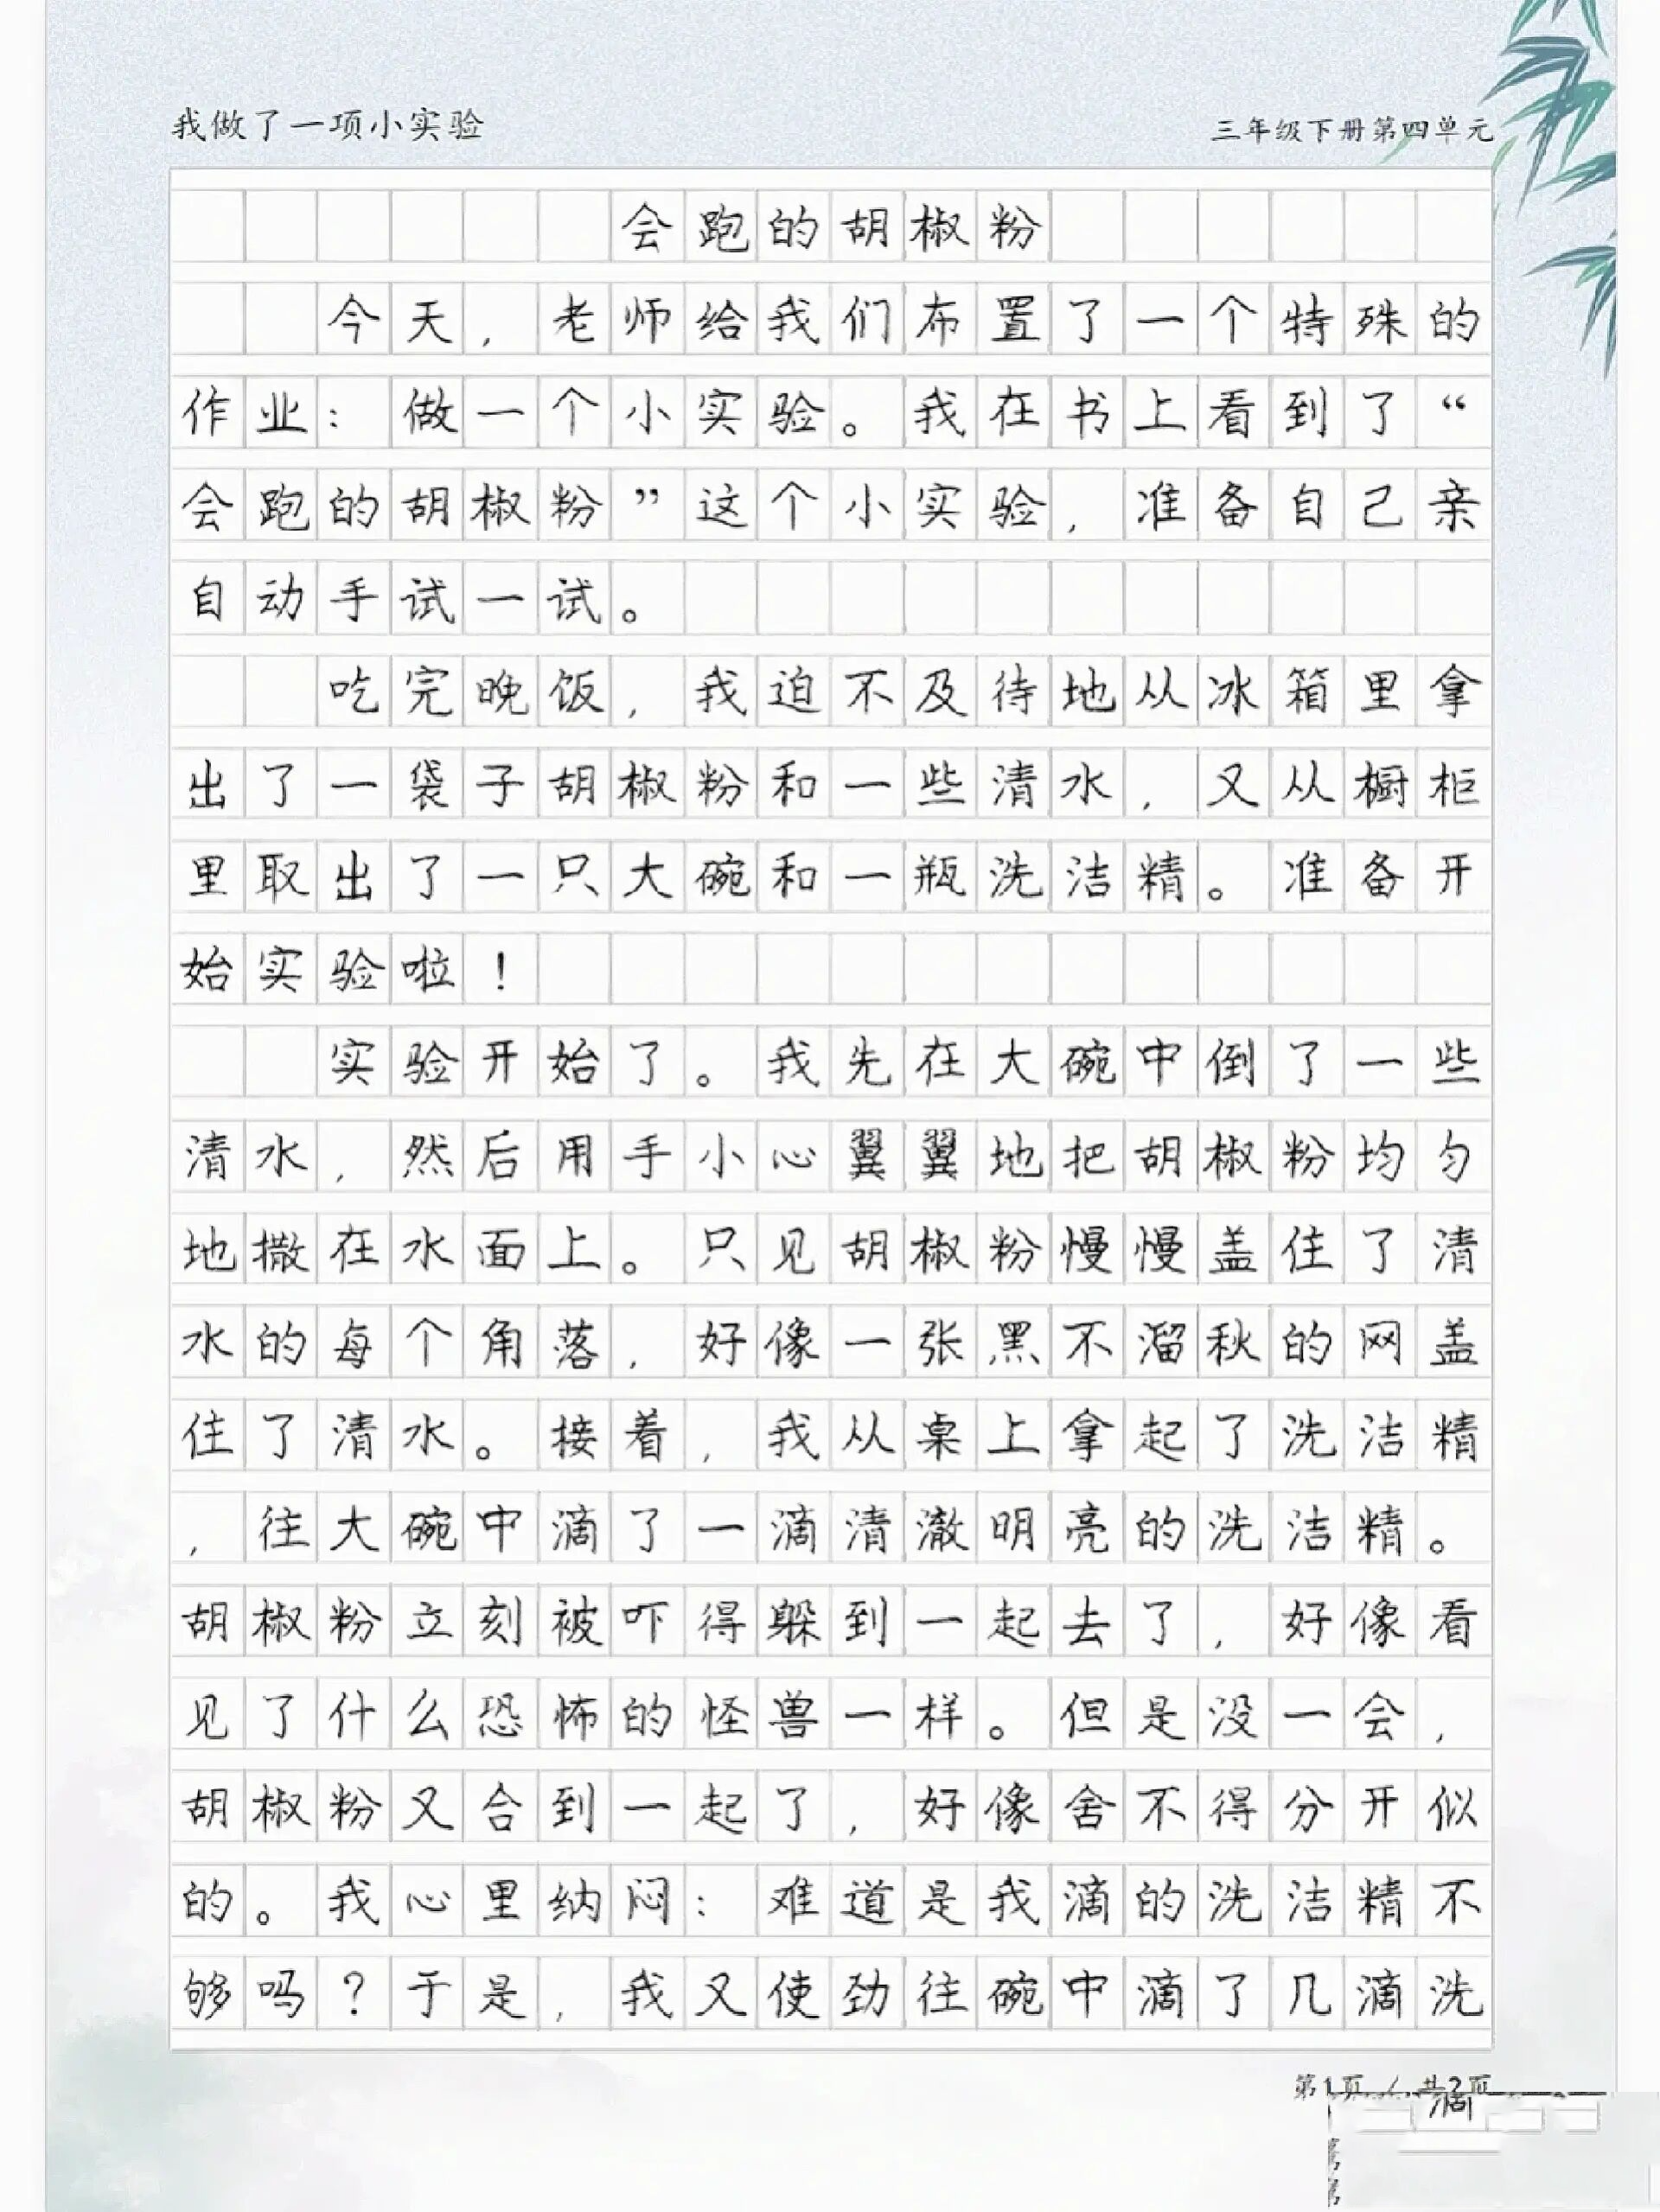 我做了一项小实验
三年级下册第四单元
会跑的胡椒粉
今天，老师给我们布置了一个特殊的
作业：做一个小实验。我在书上看到了“
会跑的胡椒粉”这个小实验，准备自己亲
自动手试一试。
吃完晚饭，我迫不及待地从冰箱里拿
出了一袋子胡椒粉和一些清水，又从橱柜
里取出了一只大碗和一瓶洗洁精。准备开
始实验啦！
实验开始了。我先在大碗中倒了一些
清水，然后用手小心翼翼地把胡椒粉均匀
地撒在水面上。只见胡椒粉慢慢盖住了清
水的每个角落，好像一张黑不溜秋的网盖
住了清水。接着，我从桌上拿起了洗洁精
，往大碗中滴了一滴清澈明亮的洗洁精。
胡椒粉立刻被吓得躲到一起去了，好像看
见了什么恐怖的怪兽一样。但是没一会，
胡椒粉又合到一起了，好像舍不得分开似
的。我心里纳闷：难道是我滴的洗洁精不
够吗？于是，我又使劲往碗中滴了几滴洗
第1页 / 共2页
滴